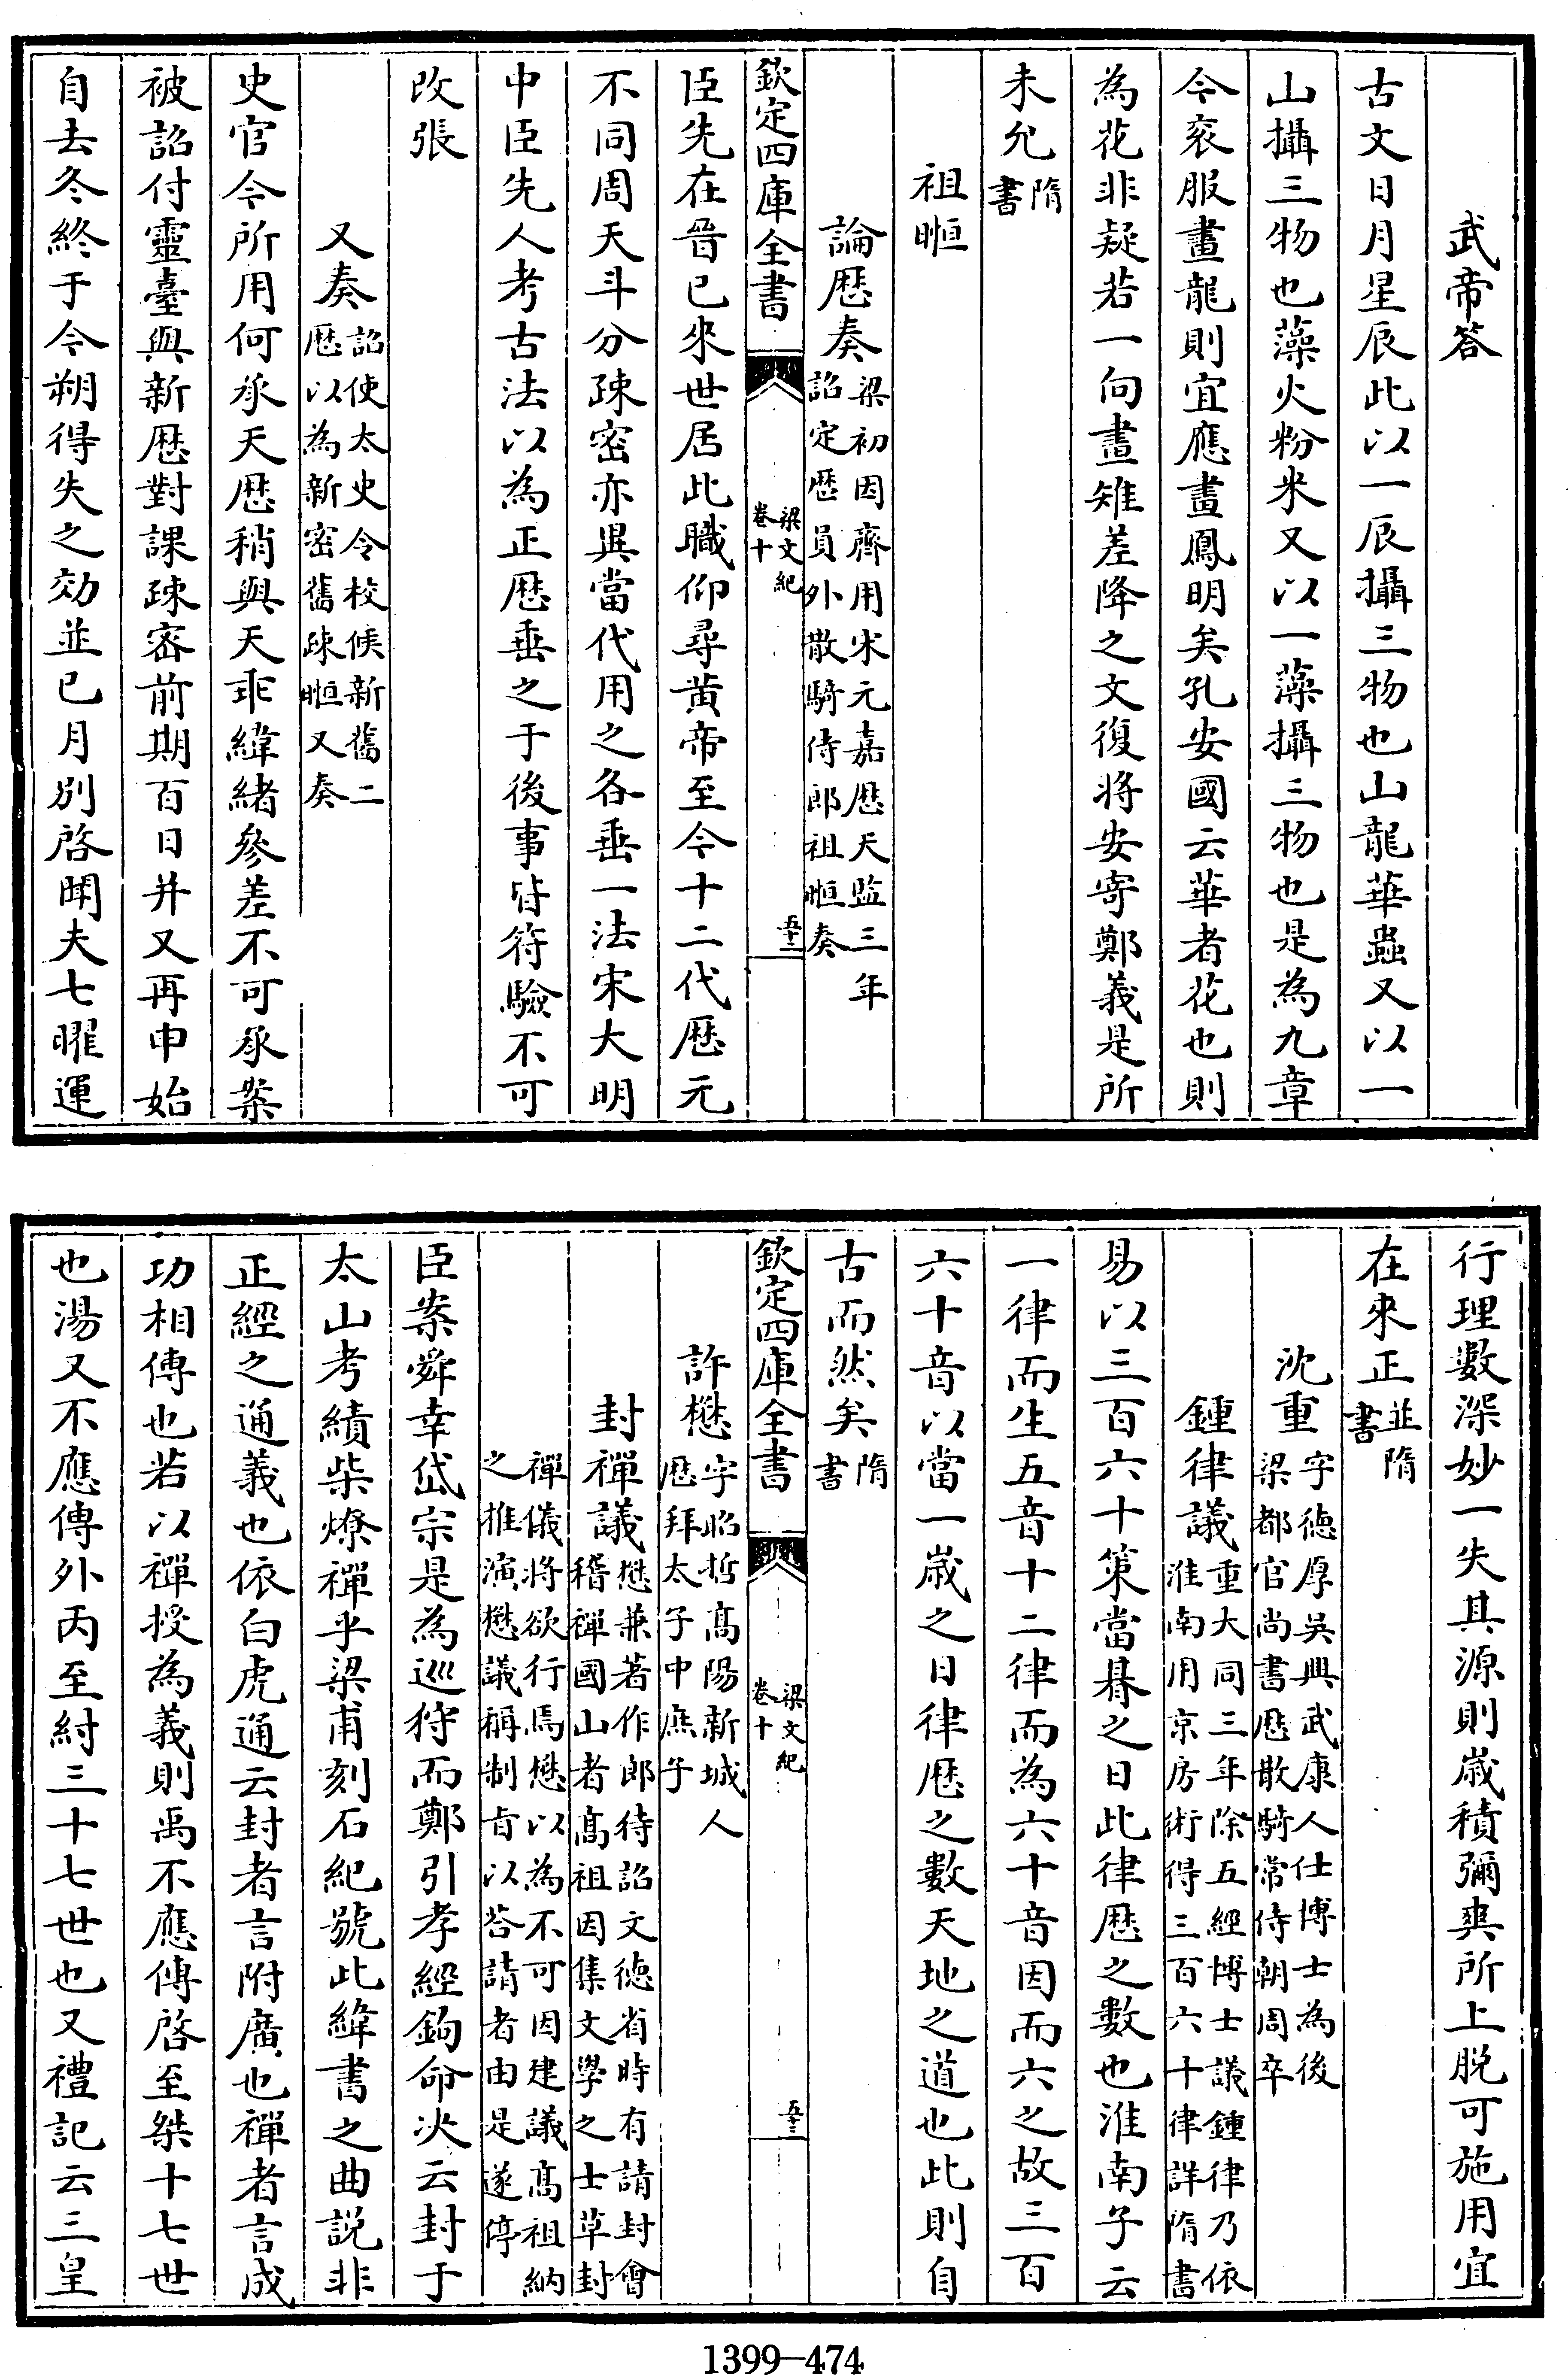 武帝答
古文日月星辰此以一辰攝三物也山龍華蟲又以一
山攝三物也藻火粉米又以一藻攝三物也是為九章
今衮服畫龍則宜應畫鳳明矣孔安國云華者花也則
為花非疑若一向畫雉差降之文復將安寄鄭義是所
未允隋
書
祖暅
論厯奏梁初因齊用宋元嘉厯天監三年
詔定厯員外散騎侍郎祖暅奏
欽定四庫全書
梁文紀
卷十
五十二
臣先在晉已來世居此職仰尋黄帝至今十二代厯元
不同周天斗分疎密亦異當代用之各垂一法宋大明
中臣先人考古法以為正厯垂之于後事皆符驗不可
改張
又奏詔使太史令校候新舊二
厯以為新密舊疎暅又奏
史官今所用何承天厯稍與天乖緯緒參差不可承案
被詔付靈臺與新厯對課疎密前期百日并又再申始
自去冬終于今朔得失之効並已月别啓聞夫七曜運
行理數深妙一失其源則嵗積彌爽所上脱可施用宜
在來正並隋
書
沈重字德厚吳興武康人仕博士為後
梁都官尚書厯散騎常侍朝周卒
鍾律議重大同三年除五經博士議鍾律乃依
淮南用京房術得三百六十律詳隋書
易以三百六十策當朞之日此律厯之數也淮南子云
一律而生五音十二律而為六十音因而六之故三百
六十音以當一嵗之日律厯之數天地之道也此則自
古而然矣隋
書
欽定四庫全書
梁文紀
卷十
五十三
許懋字昭哲髙陽新城人
厯拜太子中庶子
封禪議懋兼著作郎待詔文德省時有請封會
稽禪國山者髙祖因集文學之士草封
禪儀將欲行焉懋以為不可因建議髙祖納
之推演懋議稱制旨以荅請者由是遂停
臣案舜幸岱宗是為巡狩而鄭引孝經鉤命决云封于
太山考績柴燎禪乎梁甫刻石紀號此緯書之曲説非
正經之通義也依白虎通云封者言附廣也禪者言成
功相傳也若以禪授為義則禹不應傳啓至桀十七世
也湯又不應傳外丙至紂三十七世也又禮記云三皇
1399—474